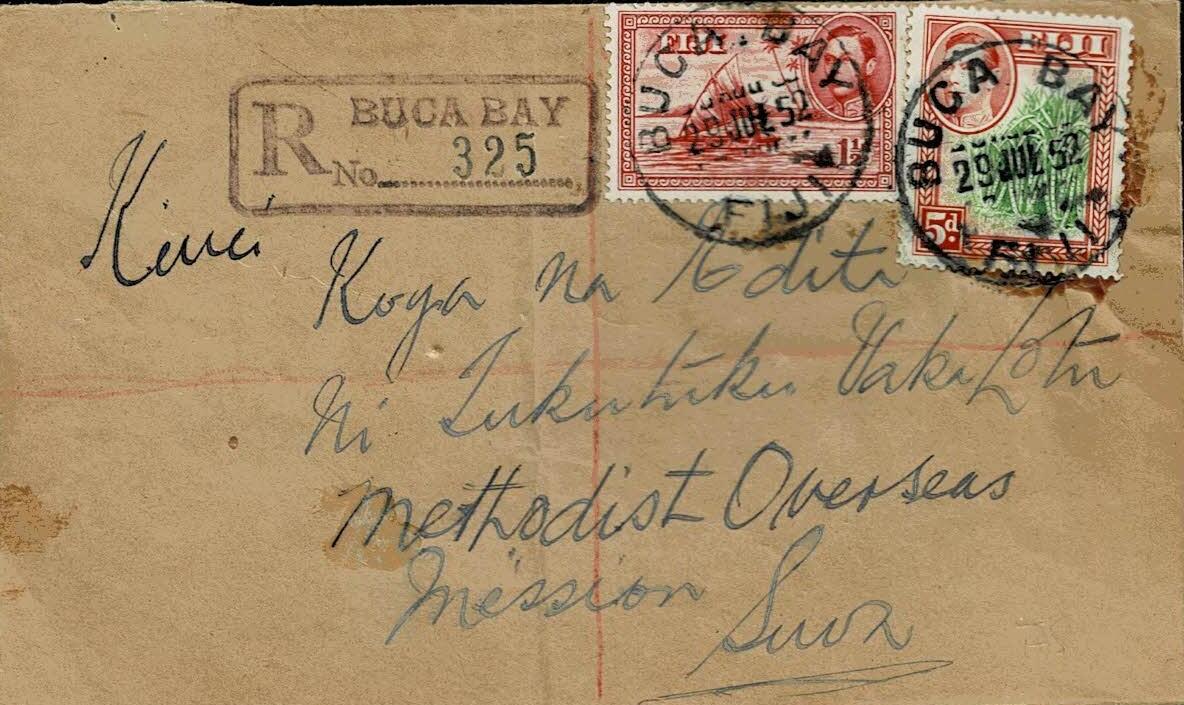 R BUCA BAY
No 325
FIJI
1½
BUCA BAY
29 JUL 52
FIJI
FIJI
5d.
BUCA BAY
29 JUL 52
FIJI
Kivei
Koya na Edita
Ni Tukutuku Vaka Lotu
Methodist Overseas
Mission
Suva